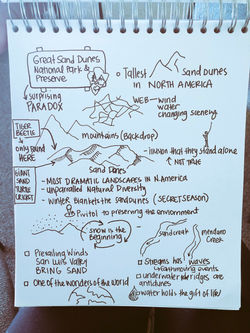 Great Sand Dunes
National Park &
Preserve
surprising
PARADOX
Tallest
Sand Dunes
in NORTH AMERICA
WEB - wind
water
changing scenery
TIGER
BEETLE
only found
HERE
mountains (Backdrop)
illusion that they stand alone
NOT TRUE
Sand Dunes
GIANT
SAND
TURTLE
CRICKET
- MOST DRAMATIC LANDSCAPES IN N. America
- unparalleled Natural Diversity
- Winter Blankets the Sand dunes (SECRET SEASON)
Pivitol to preserving the environment
snow is the
Beginning
sand creek
medano
Creek
Prevailing Winds
San Luis Valley
BRING SAND
One of the wonders of the world
Streams has waves
underwater bridges are
antidunes
water holds the gift of life!